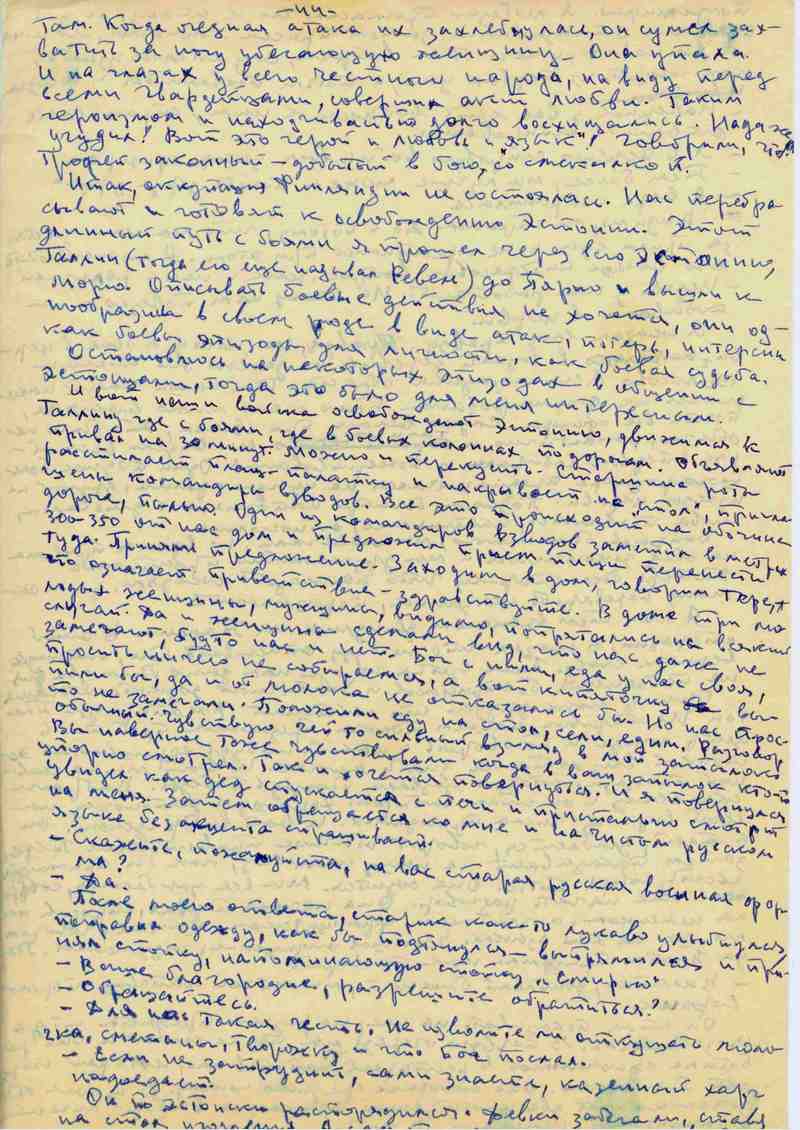 -44-
там. Когда очедная атака их захлебнулась, он сумел зах-
ватить за ногу убегающую женщину. Она упала.
И на глазах у всего честного народа, на виду перед
всеми гвардейцами, совершил акт любви. Таким
героизмом и находчивостью долго восхищались. Надо же
учудил! Вот это герой и любовь и "язык"! говорили, что
Трофей законный – добытый в бою, со смекалкой.
Итак, оккупация Финляндии не состоялась. Нас перебра
сывают и готовят к освобождению Эстонии. Этот
длинный путь с боями я прошел через всю Эстонию,
Таллин (тогда его еще называл Ревель) до Пярно и вышли к
морю. Описывать боевые действия не хочется, они од-
нообразны в своем роде в виде атак, потерь, интерсны
как боевы эпизоды для личности, как боевая судьба.
Остановлюсь на некоторых эпизодах в общении с
эстонцами, тогда это было для меня интересным.
И вот наши войска освобождают Эстонию, движимся к
Таллину где с боями, где в боевых колоннах по дорогам. Объявляют
привал на 30 минут. Можно и перекусить. Старшина роты
расстилает плащ-палатку и накрывает на "стол", пригла
шены командиры взводов. Все это происходит на обочине
дороге, пыльно. Один из командиров взводов заметил в метрах
300-350 от нас дом и предложил прием пищи перенести
туда. Приняли предложение. Заходим в дом, говорим
что означает приветствие – здравствуйте. В доме три мо
лодых женщины, мужчины, видимо, попрятались на всякий
случай. Да и женщины сделали вид, что нас даже не
замечают, будто нас и нет. Бог с ними, еда у нас своя,
просить ничего не собираемся, а вот кипяточку вы
пили бы, да и от молока не отказались бы. Но нас прос-
то не замечали. Положили еду на стол, сели, едим. Разговор
обычный. Чувствую чей то сильный взгляд в мой затылок
Вы наверное тоже чувствовали когда в ваш затылок кто-то
упорно смотрел. Так и хочется повернуться. И я повернулся
увидел как дед спускается с печи и пристально смотрит
на меня. Затем обращается ко мне и на чистом русском
языке без акцента спрашивает.
– Скажите, пожалуйста, на вас старая русская военная фор
ма?
– Да.
После моего ответа, старик как-то лукаво улыбнулся,
поправил одежду, как бы подтянулся – выпрямился и при-
нял стойку, напоминающую стойку "смирно"
– Ваше благородие, разрешите обратиться?
– Обращайтесь.
– Для нас такая честь. Не изволите ли откушать моло
чка, сметаны, творожку и что Бог послал.
– Если не затруднит, сами знаете, казенный харч
надоедает.
Он по эстонски распорядился. Девки забегали, ставя
на стол